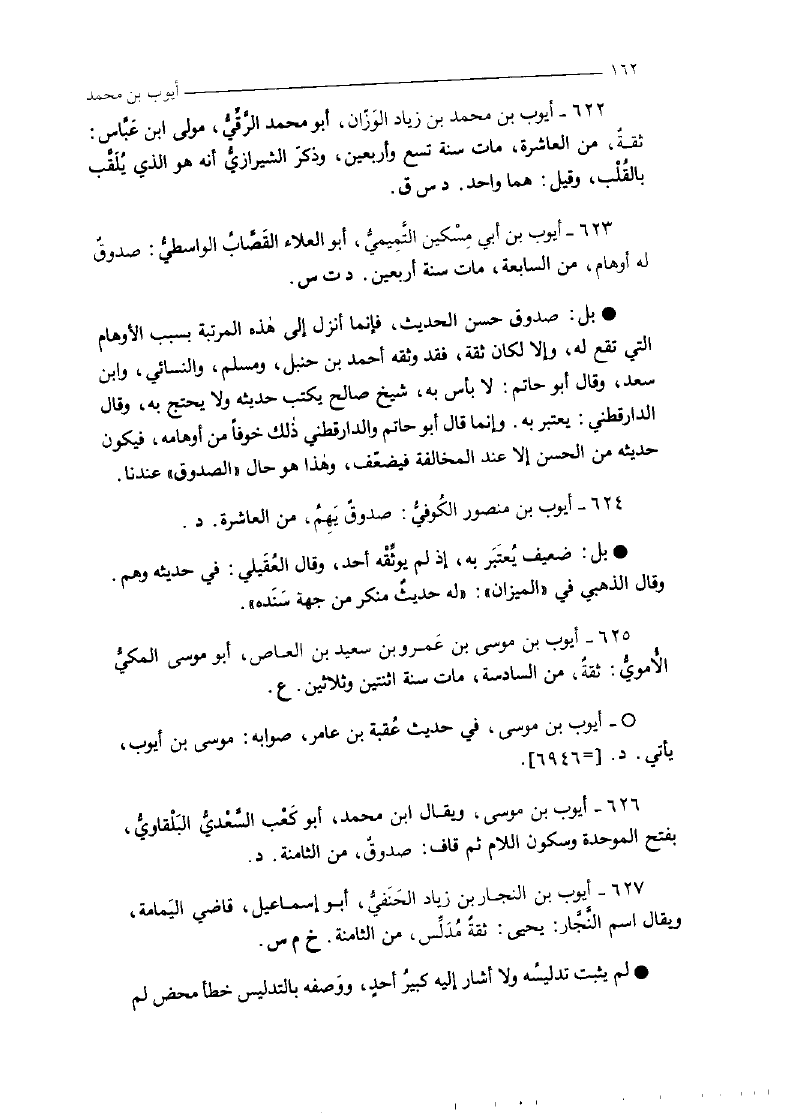 ١٦٢
أيوب بن محمد
٦٢٢ ـ أيوب بن محمد بن زياد الوَزّان، أبو محمد الرَّقِّيُّ، مولى ابن عَبَّاس:
ثقةٌ، من العاشرة، مات سنة تسع وأربعين، وذكرَ الشيرازيُّ أنه هو الذي يُلَقَّب
بالقُلْب، وقيل: هما واحد. د س ق.
٦٢٣ ـ أيوب بن أبي مِسْكين التَّمِيميُّ، أبو العلاء القَصَّابُ الواسطيُّ: صدوقٌ
له أوهام، من السابعة، مات سنة أربعين. د ت س.
● بل: صدوق حسن الحديث، فإنما أنزل إلى هٰذه المرتبة بسبب الأوهام
التي تقع له، وإلا لكان ثقة، فقد وثقه أحمد بن حنبل، ومسلم، والنسائي، وابن
سعد، وقال أبو حاتم: لا بأس به، شيخ صالح يكتب حديثه ولا يحتج به، وقال
الدارقطني: يعتبر به. وإنما قال أبو حاتم والدارقطني ذٰلك خوفاً من أوهامه، فيكون
حديثه من الحسن إلا عند المخالفة فيضعّف، وهٰذا هو حال «الصدوق» عندنا.
٦٢٤ ـ أيوب بن منصور الكُوفيُّ: صدوقٌ يَهِمُ، من العاشرة. د .
● بل: ضعيف يُعتَبَر به، إذ لم يوثِّقْه أحد، وقال العُقَيلي: في حديثه وهم.
وقال الذهبي في «الميزان»: «له حديثٌ منكر من جهة سَنَده».
٦٢٥ ـ أيوب بن موسى بن عَمـرو بن سعيد بن العـاص، أبو موسى المكيُّ
الأُمويُّ: ثقةٌ، من السادسة، مات سنة اثنتين وثلاثين. ع.
○ ـ أيوب بن موسى، في حديث عُقبة بن عامر، صوابه: موسى بن أيوب،
يأتي. د. [=٦٩٤٦].
٦٢٦ ـ أيوب بن موسى، ويقـال ابن محمد، أبو كَعْب السَّعْديُّ البَلْقاويُّ،
بفتح الموحدة وسكون اللام ثم قاف: صدوقٌ، من الثامنة. د.
٦٢٧ ـ أيوب بن النجـار بن زياد الحَنَفيُّ، أبـو إسمـاعيل، قاضي اليَمامة،
ويقال اسم النَّجَّار: يحيى: ثقةٌ مُدَلِّس، من الثامنة. خ م س.
● لم يثبت تدليسُه ولا أشار إليه كبيرُ أحدٍ، ووَصفه بالتدليس خطأ محض لم